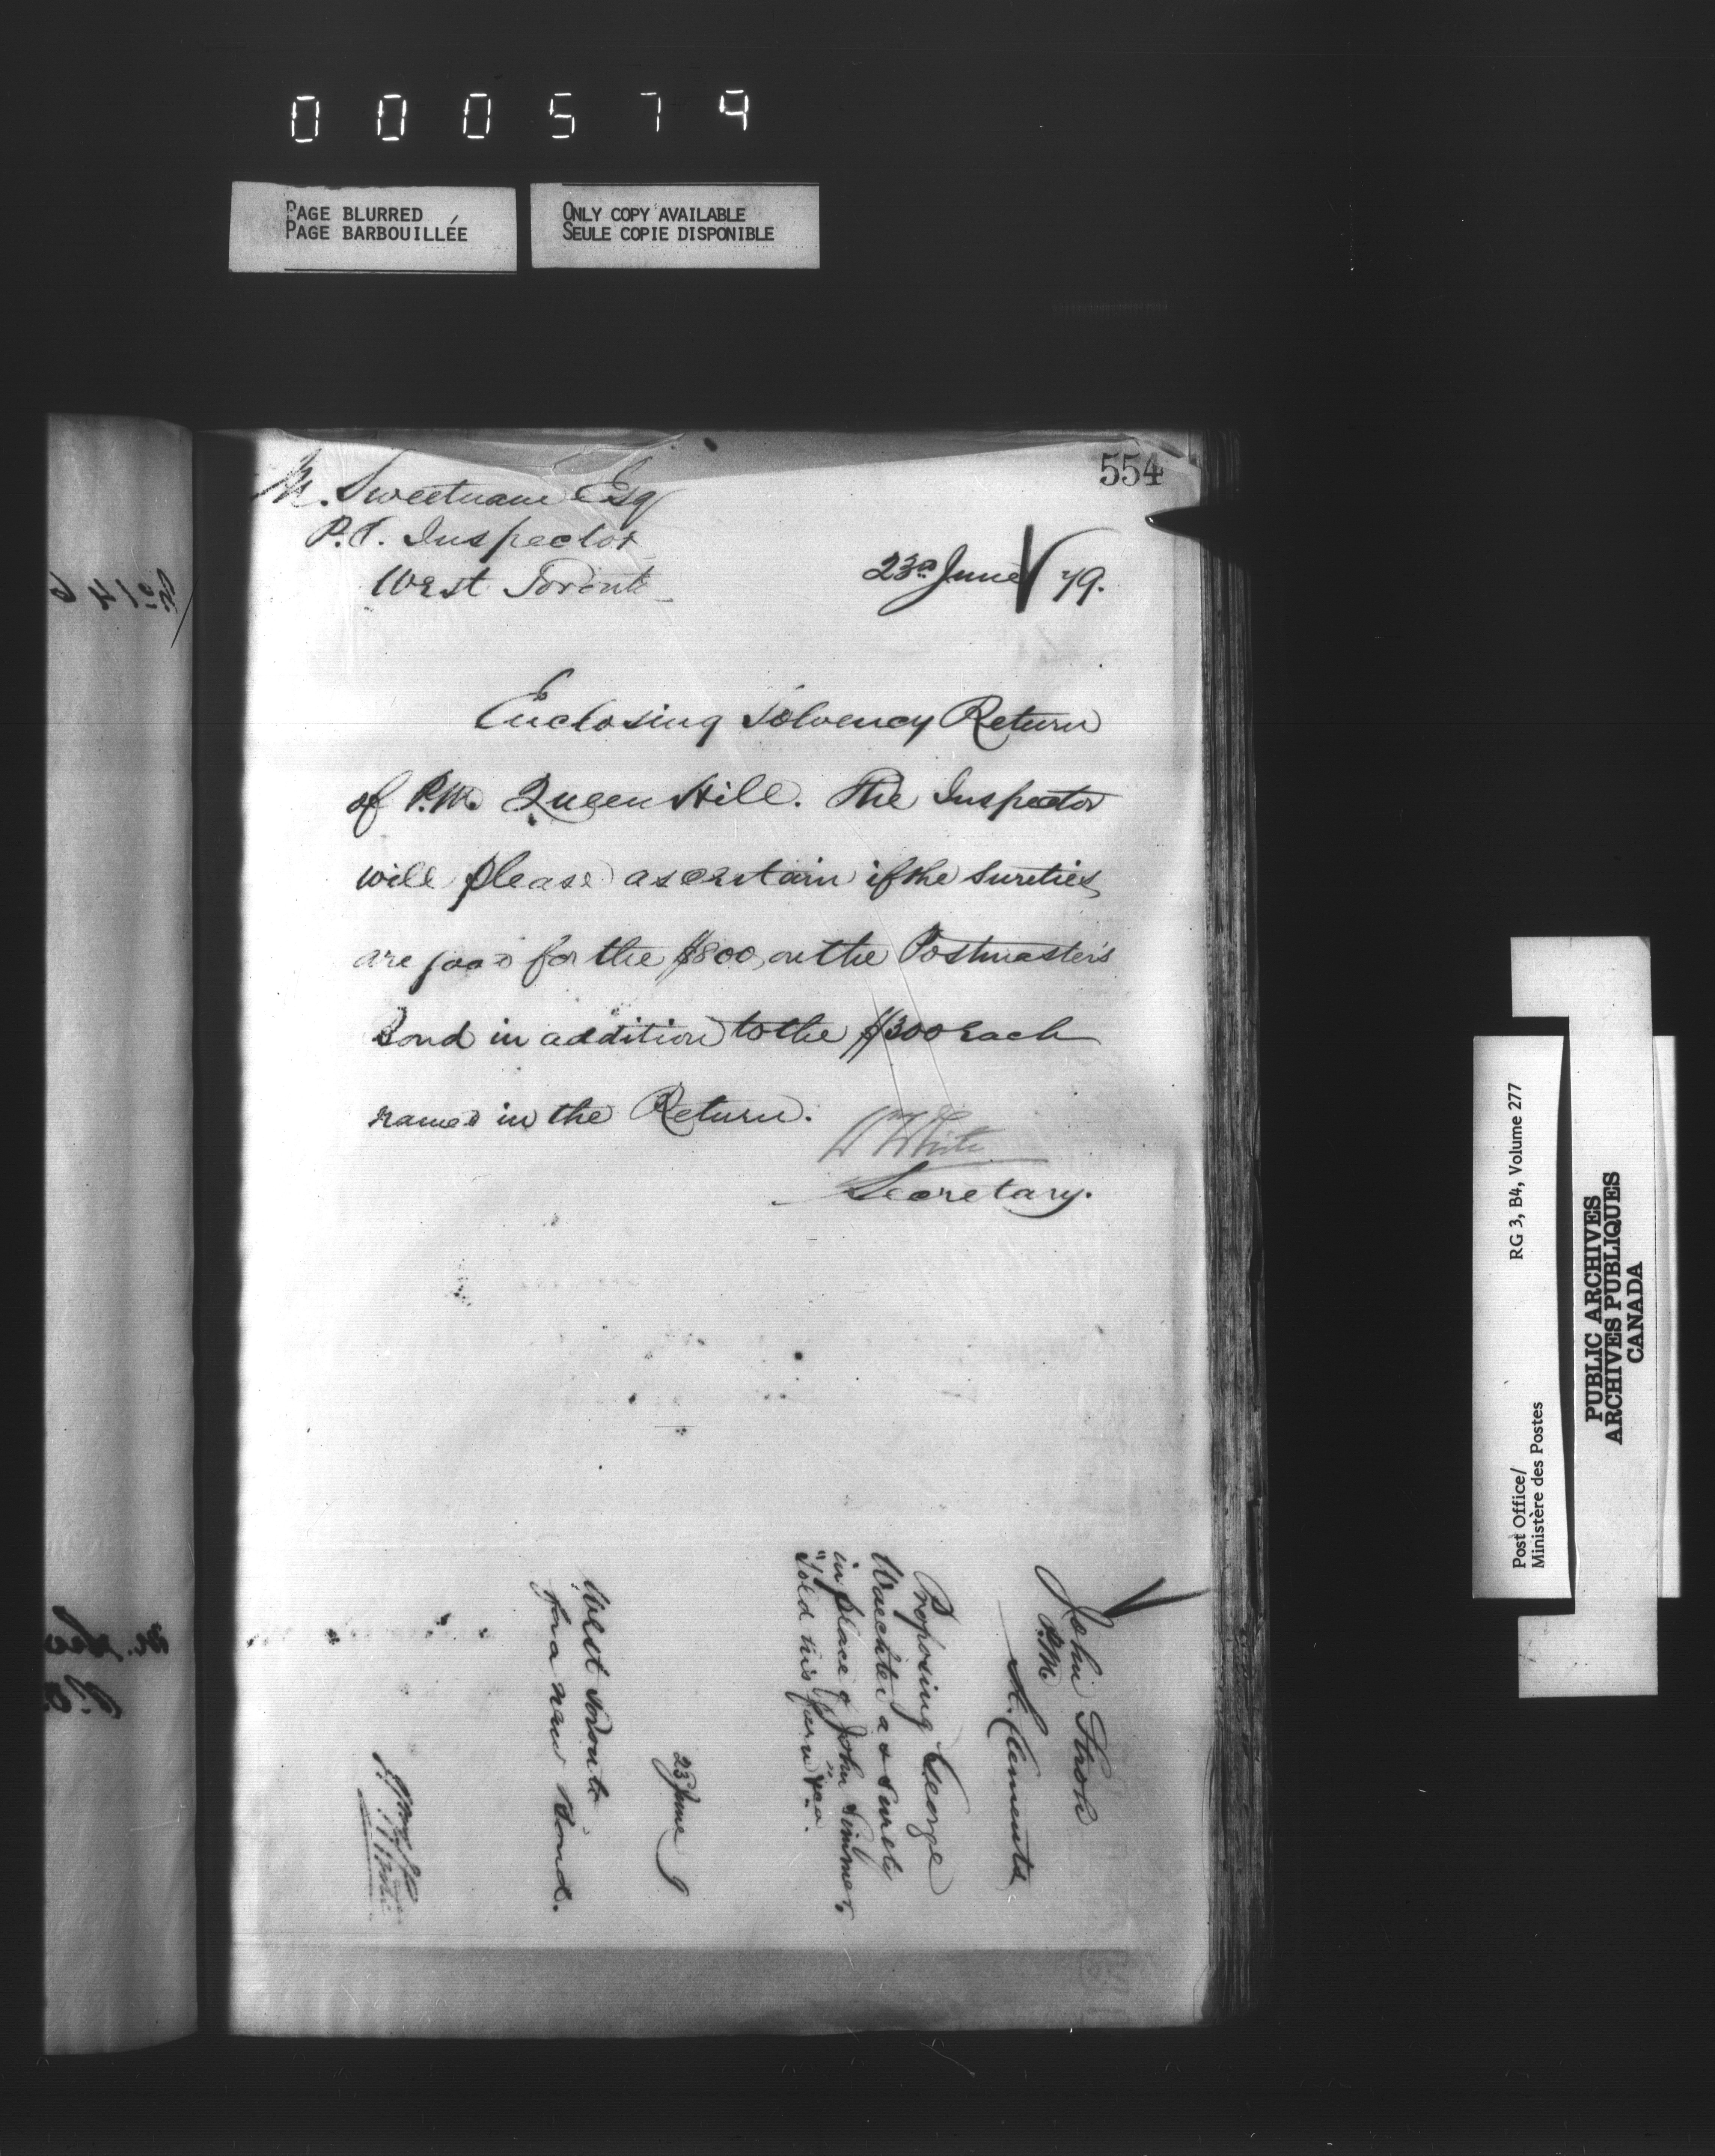 000579
PAGE BLURRED
PAGE BARBOUILLÉE
ONLY COPY AVAILABLE
SEULE COPIE DISPONIBLE
554
M. Sweetnam Esq
P.O. Inspector
West Toronto
23d June 79.
Enclosing Solvency Return
of P.M. Queen Hill. The Inspector
will please ascertain if the Sureties
are good for the $800, on the Postmaster's
Bond in addition to the $300 each
named in the Return.
Wm White
Secretary.
John Stroh
P.M.
St. Clements
Proposing George
as Surety
in place of John
"Sold his farm
23 June 9
West Toronto
for a new Bond.
Post Office/
Ministère des Postes
RG 3, B4, Volume 277
PUBLIC ARCHIVES
ARCHIVES PUBLIQUES
CANADA